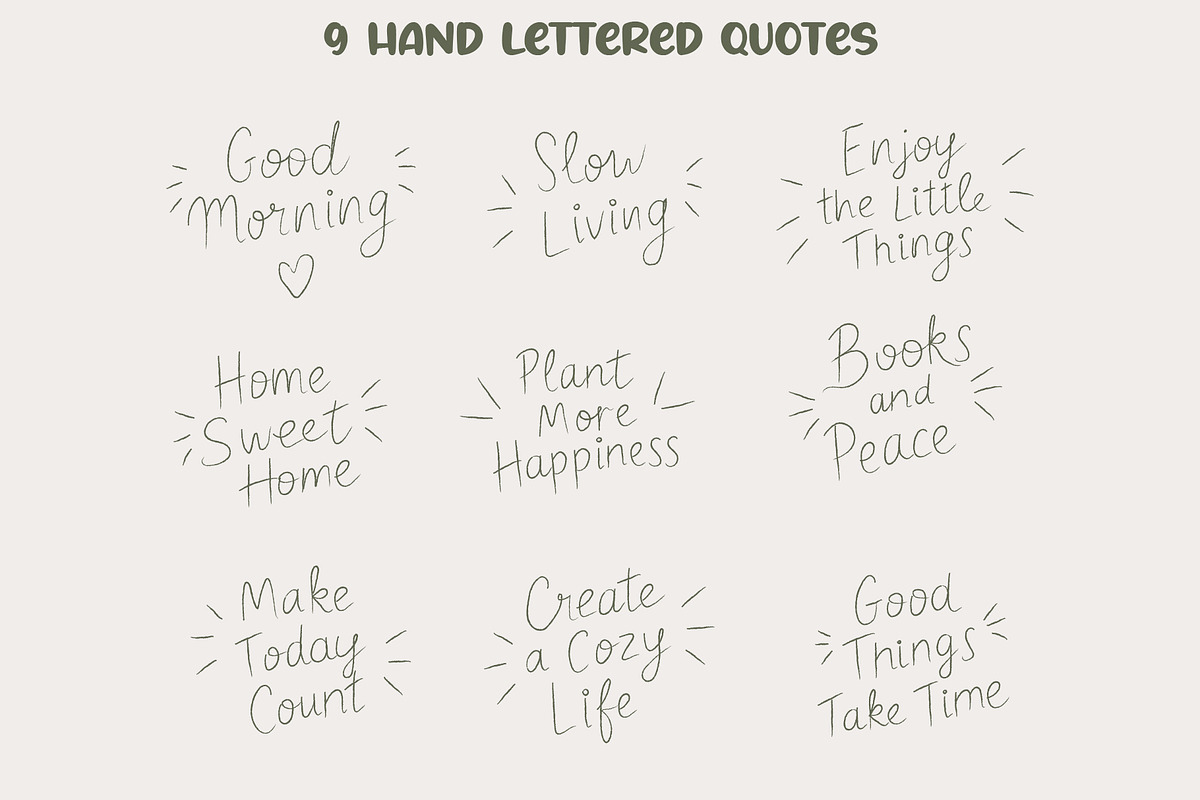 9 HAND LETTERED QUOTES
Good
Morning
Slow
Living
Enjoy
the Little
Things
Home
Sweet
Home
Plant
More
Happiness
Books
and
Peace
Make
Today
Count
Create
a Cozy
Life
Good
Things
Take Time